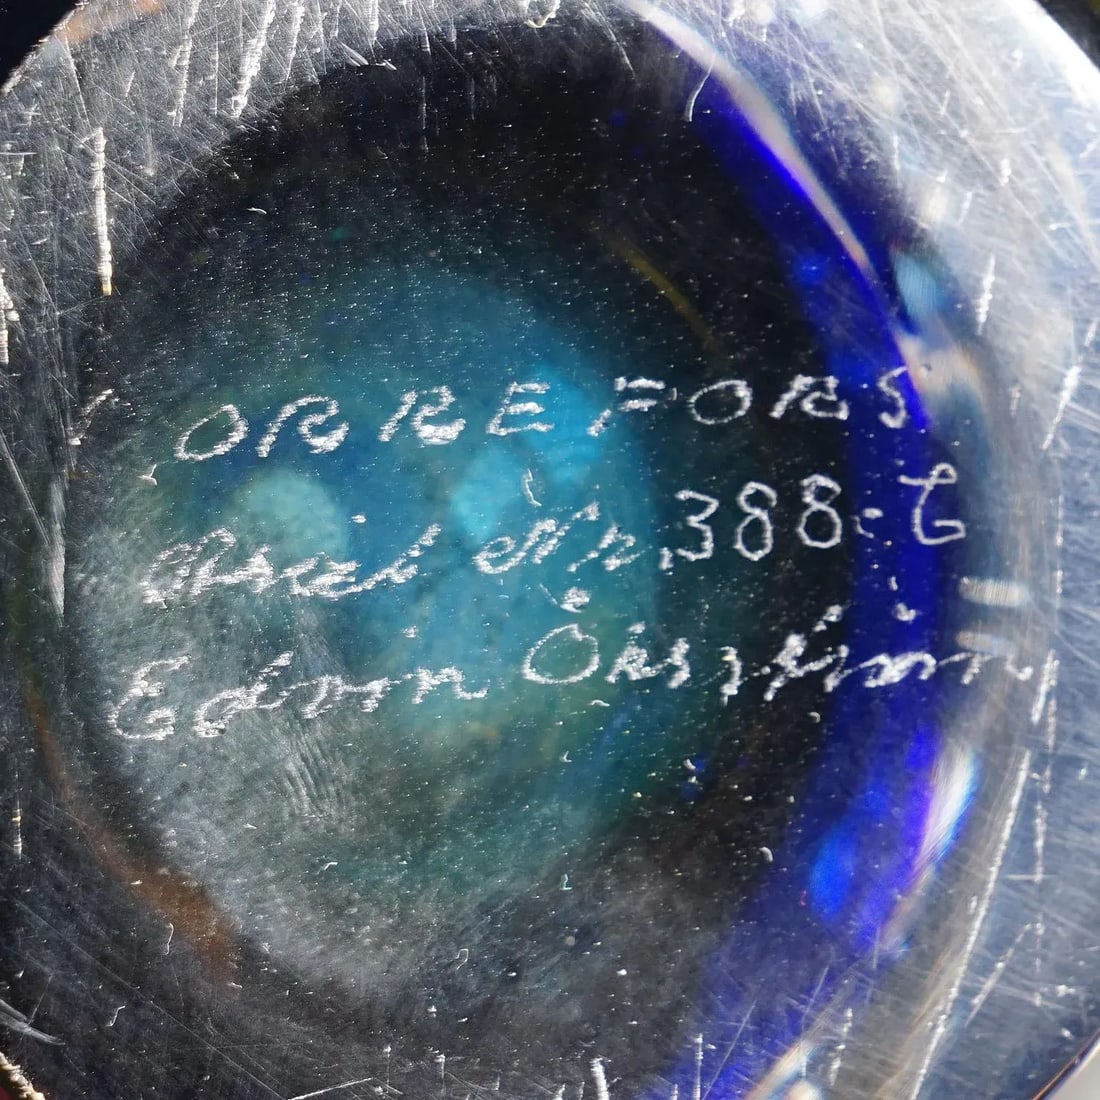 ORREFORS
Ariel Nr. 388-G
Edvin Öhrström